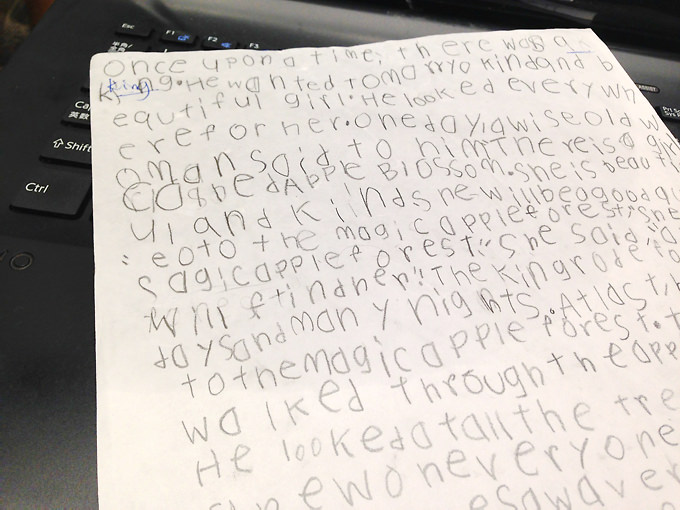 Esc
F1
F2
F3
半角/
英数
Shift
Ctrl
once upon a time, there was a
king. He wanted to marry a kind and b
eautiful girl. He looked everywh
ere for her. one day, a wise old w
oman said to him There is a girl
called Apple Blossom. she is beautif
ul and kind she will be a good qu
eoto the magic apple forest," she
s "she said, "
agic apple forest
will find her!" The king rode to
days and many nights. At last, h
to the magic apple forest.
walked through the app
He looked at all the tre
on every one